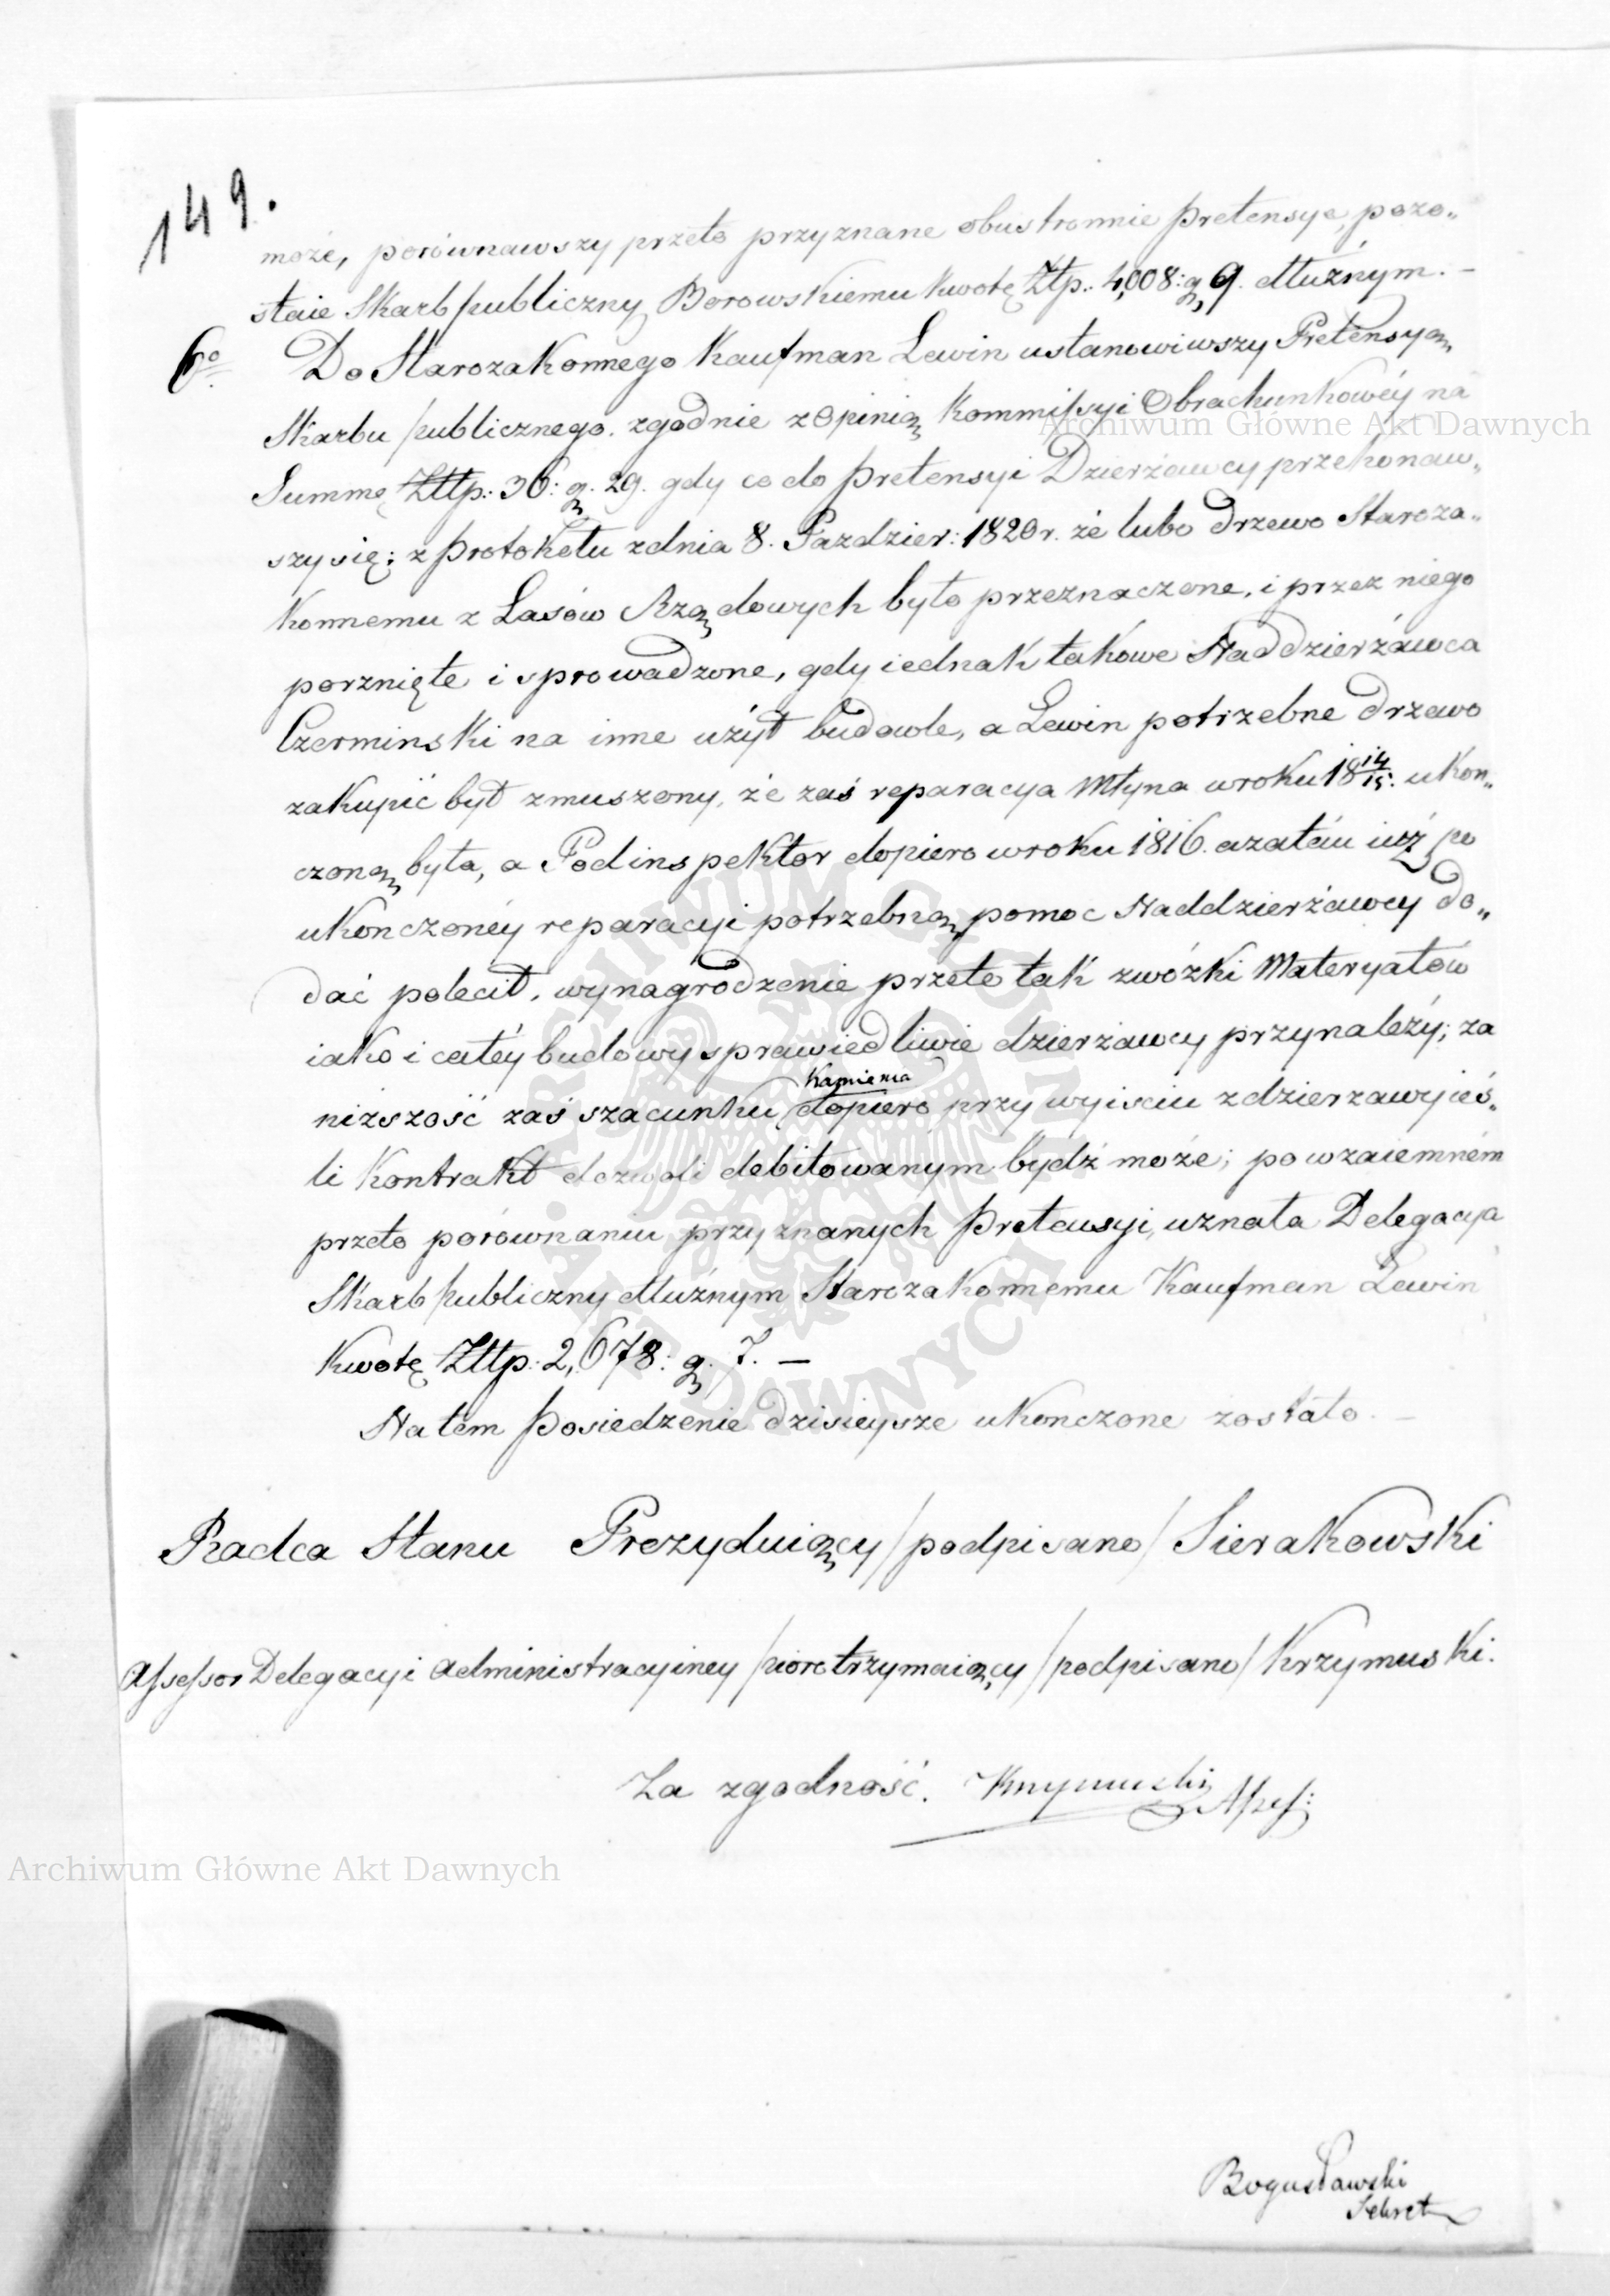 149.
może, porównawszy przeto przyznane obustronnie pretensye, pozo„
staie Skarb publiczny Borowskiemu kwotę Złp: 4,008: g. 9. dłużnym. —
6o Do Starozakonnego Kaufman Lewin ustanowiwszy Pretensyą
Skarbu publicznego. zgodnie z Opinią Kommissyi Obrachunkowéy na
Summę Złtp: 36: g. 29. gdy co do pretensyi Dzierżawcy przekonaw„
szy się: z protokułu z dnia 8. Pazdzier: 1820 r. że lubo drzewo Staroza„
konnemu z Lasów Rządowych było przeznaczone, i przez niego
porznięte i sprowadzone, gdy iednak takowe Naddzierżawca
Czerminski na inne użył budowle, a Lewin potrzebne drzewo
zakupić był zmuszony, że zaś reparacya Młyna w roku 18 14/15. ukon„
czoną była, a Podinspektor dopiero w roku 1816. a zatém iuż po
ukonczonéy reparacyi potrzebną pomoc Naddzierżawcy do„
dać polecił, wynagrodzenie przeto tak zwózki Materyałów
iako i całéy budowy sprawiedliwie dzierżawcy przynależy; za
niższość zaś szacunku kamienia dopiero przy wyisciu z dzierzawy ieś„
li kontrakt dozwoli debitowanym bydź może; po wzaiemném
przeto porównaniu przyznanych pretensyi, uznała Delegacya
Skarb publiczny dłużnym Starozakonnemu Kaufman Lewin
kwotę Złtp: 2,678: g. 7. —
Na tem posiedzenie dzisieysze ukonczone zostało. —
Radca Stanu Prezyduiący /podpisano/ Sierakowski
Assessor Delegacyi Administracyiney pioro trzymaiący /podpisano/ Krzymuski.
Za zgodność. Krzymuski Assess:
Bogusławski
Sekret
Archiwum Główne Akt Dawnych
Archiwum Główne Akt Dawnych
ARCHIWUM GŁÓWNE AKT DAWNYCH